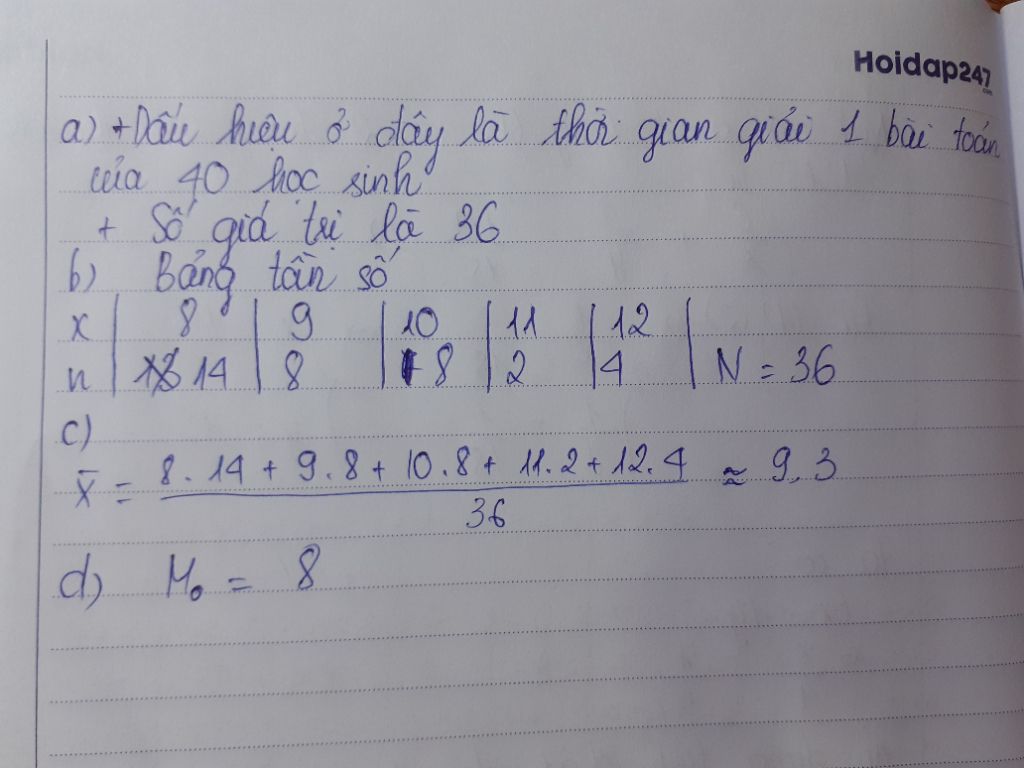 Hoidap247
.com
a) + Dấu hiệu ở đây là thời gian giải 1 bài toán
của 40 học sinh
+ Số giá trị là 36
b) Bảng tần số
x | 8 | 9 | 10 | 11 | 12 |
n | 14 | 8 | 8 | 2 | 4 | N = 36
c)
X̄ = (8.14 + 9.8 + 10.8 + 11.2 + 12.4) / 36 ≈ 9,3
d) M₀ = 8